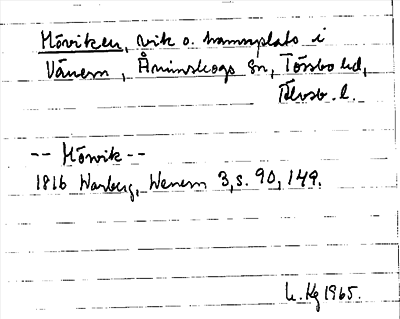 Höviken, vik o. hamnplats i
Vänern, Åminskogs sn, Tössbo hd,
Älvsb. l.
-- Hövik --
1816 Warberg, Wenern 3, s. 90, 149.
1965.